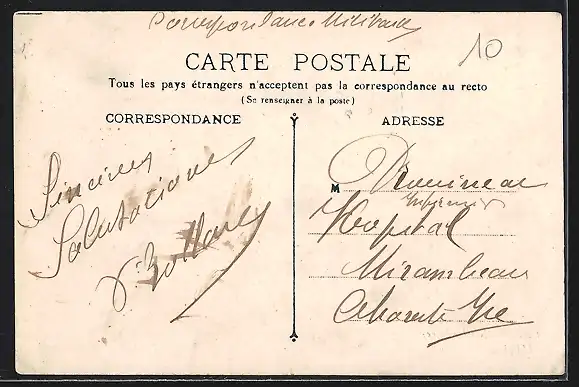 Correspondance Militaire
10
CARTE POSTALE
Tous les pays étrangers n'acceptent pas la correspondance au recto
(Se renseigner à la poste)
CORRESPONDANCE
ADRESSE
Sincères
Salutations
M Drouineau
Infirmier
Hopital
Mirambeau
Charente Ire